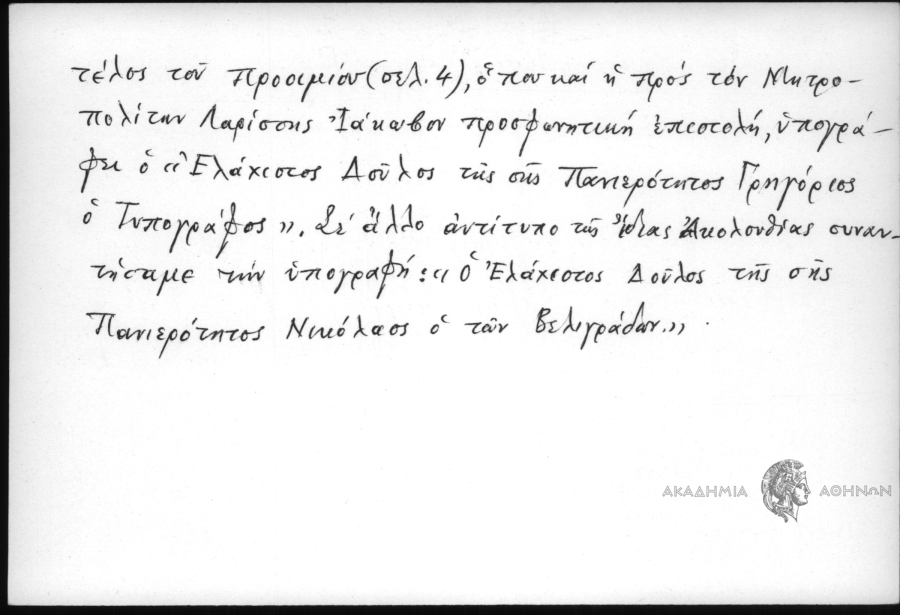 τέλος τοῦ προοιμίου (σελ. 4), ὅπου καί ἡ πρός τόν Μητρο-
πολίτην Λαρίσσης Ἰάκωβον προσφωνητική ἐπιστολή, ὑπογρά-
φει ὁ «Ἐλάχιστος Δοῦλος τῆς σῆς Πανιερότητος Γρηγόριος
ὁ Τυπογράφος». Σέ ἄλλο ἀντίτυπο τῆς ἴδιας Ἀκολουθίας συναν-
τήσαμε τήν ὑπογραφή: «Ὁ Ἐλάχιστος Δοῦλος τῆς σῆς
Πανιερότητος Νικόλαος ὁ τῶν Βελιγράδων».
ΑΚΑΔΗΜΙΑ ΑΘΗΝΩΝ